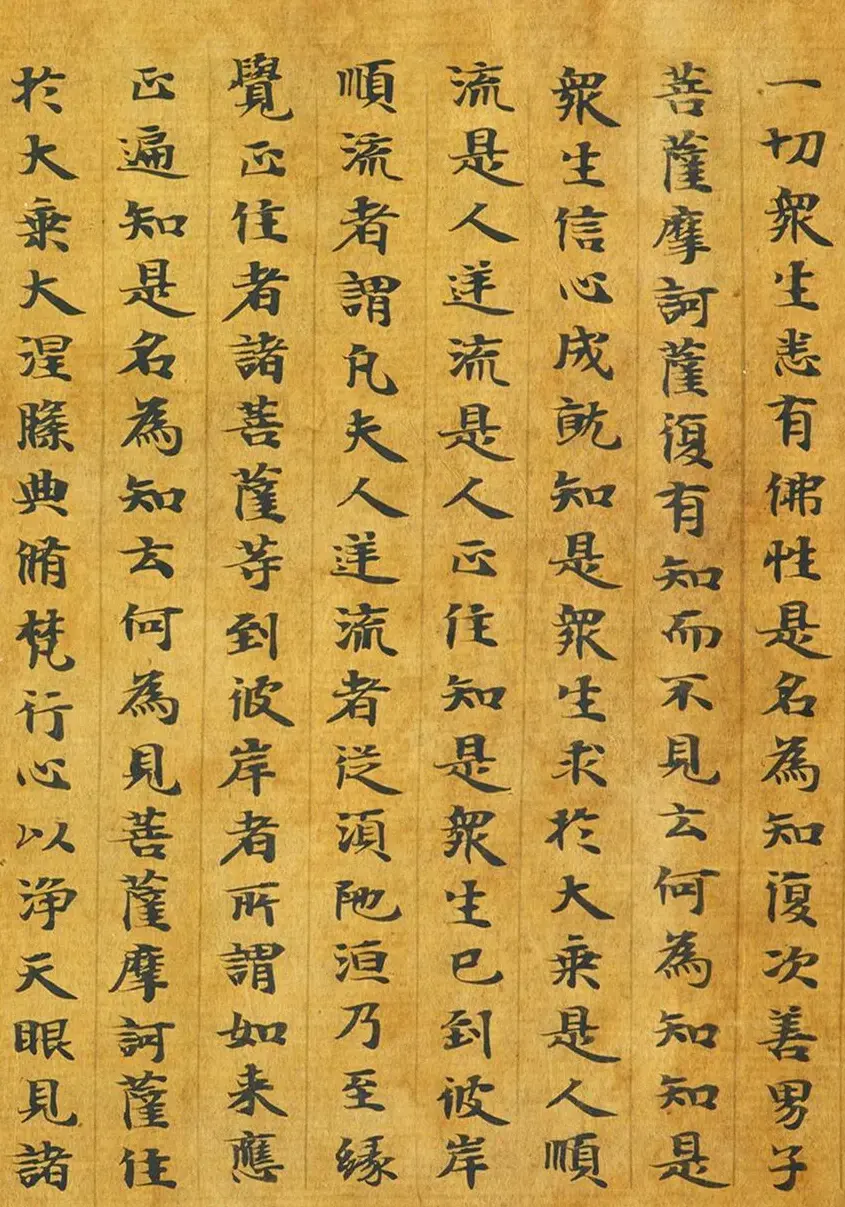 一切衆生悉有佛性是名為知復次善男子
菩薩摩訶薩復有知而不見云何為知知是
衆生信心成就知是衆生求於大乗是人順
流是人逆流是人正住知是衆生已到彼岸
順流者謂凡夫人逆流者從湏陁洹乃至緣
覺正住者諸菩薩等到彼岸者所謂如来應
正遍知是名為知云何為見菩薩摩訶薩住
於大乗大涅槃典脩梵行心以淨天眼見諸